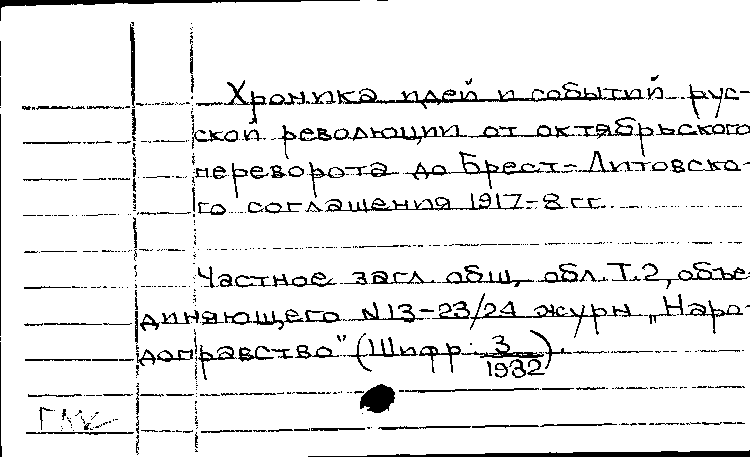 Хроника идей и событий рус-
ской революции от октябрьского
переворота до Брест-Литовско-
го соглашения 1917-8 гг.
Частное загл. общ. обл. Т.2, объе-
диняющего N13-23/24 журн „Наро-
доправство" (Шифр: 3/1932).